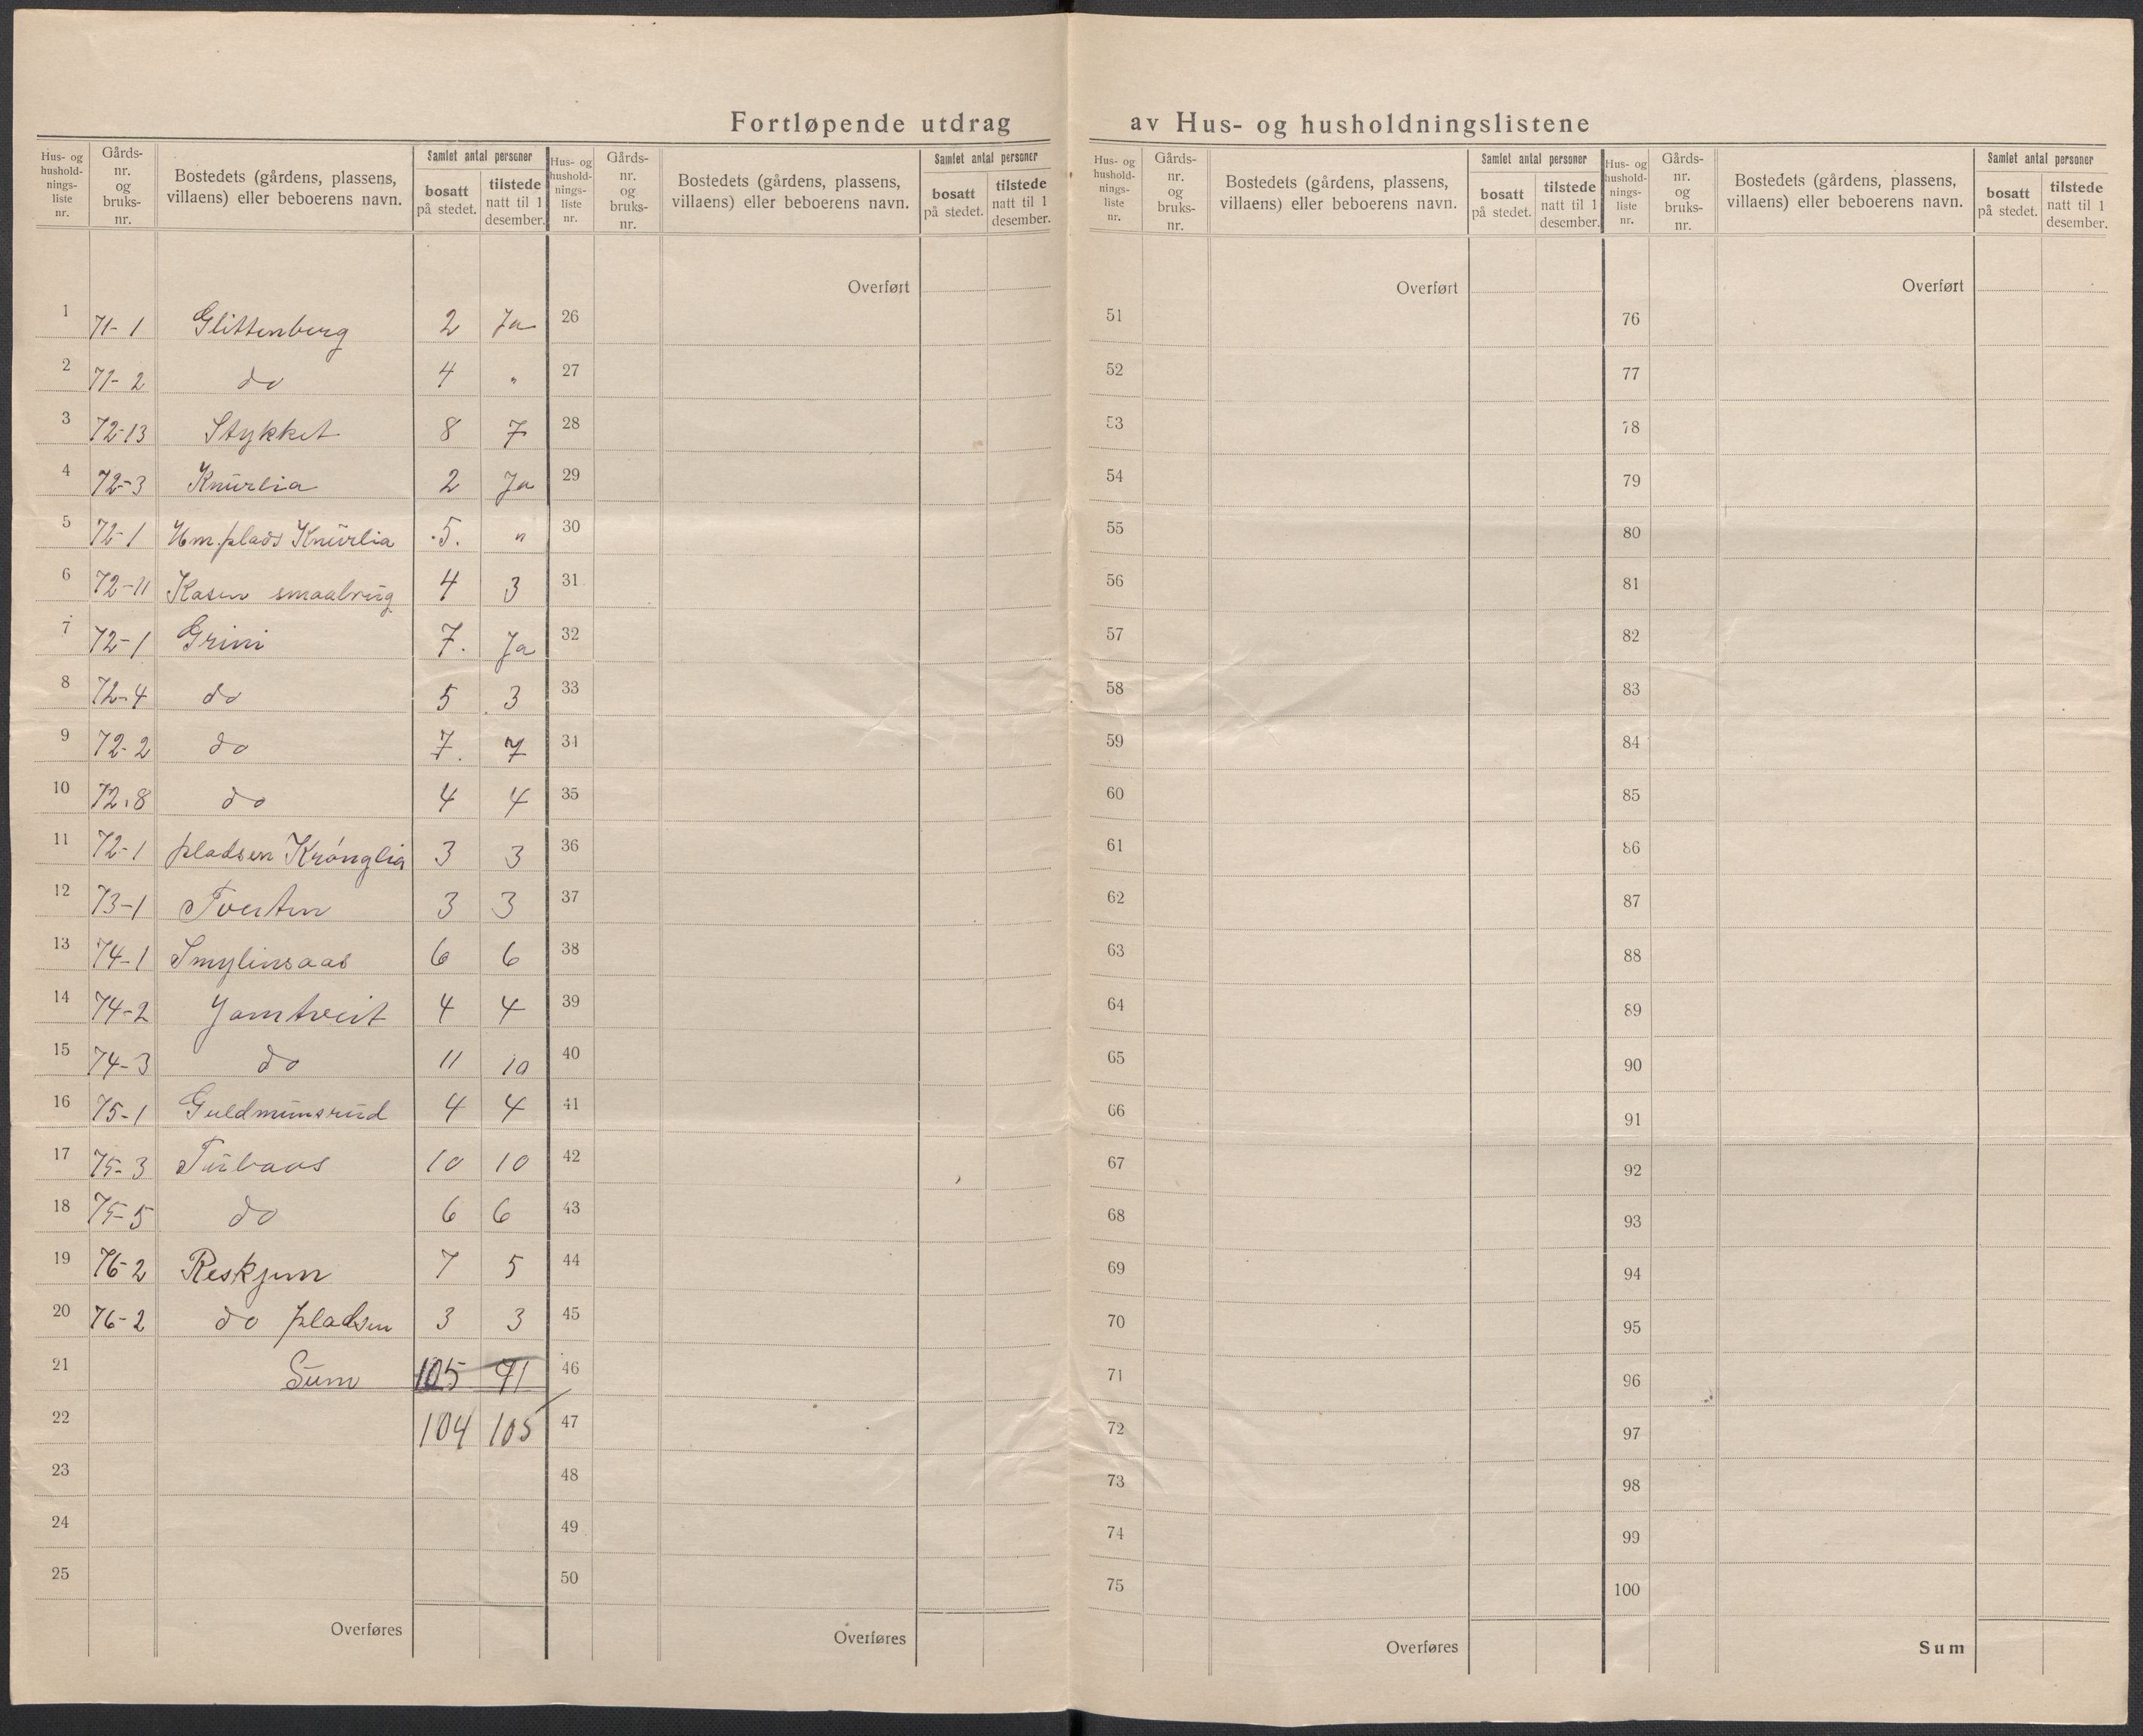 Fortløpende utdrag av Hus- og husholdningslistene
Hus- og hushold-nings-liste nr. Gårds-nr. og bruks-nr. Bostedets (gårdens, plassens, villaens) eller beboerens navn. Samlet antal personer bosatt på stedet. tilstede natt til 1 desember.
1 71-1 Glittenberg 2 Ja
2 71-2 do 4 "
3 72-13 Stykket 8 7
4 72-3 Knurlia 2 Ja
5 72-1 Hm.plads Knurlia 5. "
6 72-11 Kasen smaabrug 4 3
7 72-1 Grini 7. Ja
8 72-4 do 5 3
9 72-2 do 7. 7
10 72.8 do 4 4
11 72-1 pladsen Krónglia 3 3
12 73-1 Tveiten 3 3
13 74-1 Smylinsaas 6 6
14 74-2 Jamtveit 4 4
15 74-3 do 11 10
16 75-1 Guldmunsrud 4 4
17 75-3 Turbaas 10 10
18 75-5 do 6 6
19 76-2 Reskjem 7 5
20 76-2 do pladsen 3 3
21 Sum 105 91
22 104 105
23
24
25
Overføres
Hus- og hushold-nings-liste nr. Gårds-nr. og bruks-nr. Bostedets (gårdens, plassens, villaens) eller beboerens navn. Samlet antal personer bosatt på stedet. tilstede natt til 1 desember.
Overført
26
27
28
29
30
31
32
33
34
35
36
37
38
39
40
41
42
43
44
45
46
47
48
49
50
Overføres
Hus- og hushold-nings-liste nr. Gårds-nr. og bruks-nr. Bostedets (gårdens, plassens, villaens) eller beboerens navn. Samlet antal personer bosatt på stedet. tilstede natt til 1 desember.
Overført
51
52
53
54
55
56
57
58
59
60
61
62
63
64
65
66
67
68
69
70
71
72
73
74
75
Overføres
Hus- og hushold-nings-liste nr. Gårds-nr. og bruks-nr. Bostedets (gårdens, plassens, villaens) eller beboerens navn. Samlet antal personer bosatt på stedet. tilstede natt til 1 desember.
Overført
76
77
78
79
80
81
82
83
84
85
86
87
88
89
90
91
92
93
94
95
96
97
98
99
100
Sum